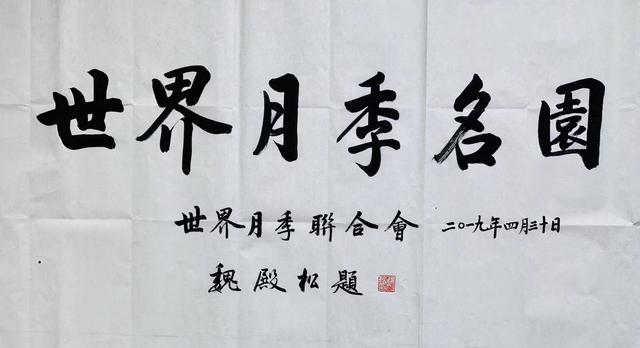 世界月季名園
世界月季聯合會 二〇一九年四月三十日
魏殿松題